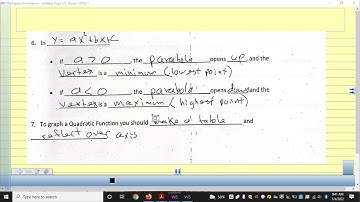 6. In y = ax²+bx+c
• If a > 0, the parabola opens up, and the
vertex is a minimum (lowest point)
• If a < 0, the parabola opens down and the
vertex is a maximum (highest point)
7. To graph a Quadratic Function you should make a table and
reflect over axis
Type here to search